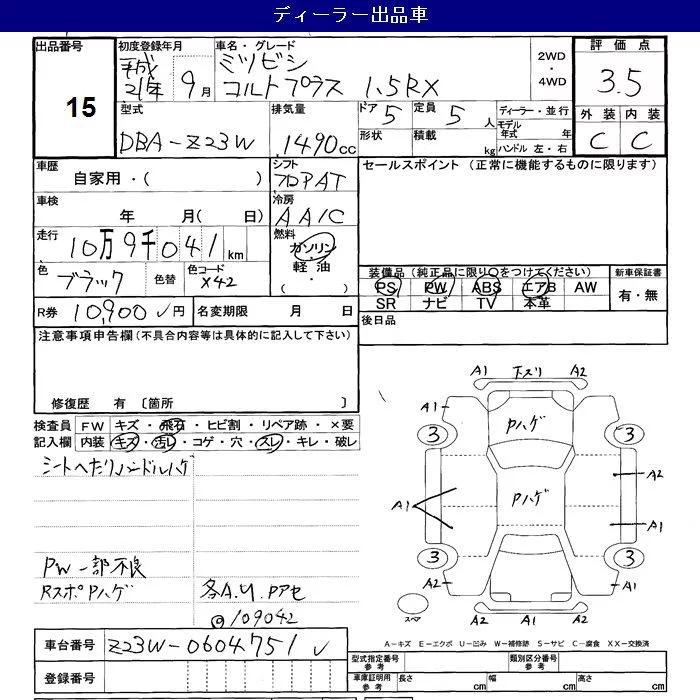 ディーラー出品車
出品番号 15
初度登録年月 平成21年 9月
車名・グレード ミツビシ コルトプラス 1.5RX
2WD・4WD
評価点 3.5
外装 内装
C C
型式 DBA-Z23W
排気量 1490cc
ドア 5 定員 5人
形状 積載 kg
ディーラー・並行
モデル年式 年
ハンドル 左・右
車歴 自家用・( )
シフト フロアAT
セールスポイント (正常に機能するものに限ります)
車検 年 月( 日)
冷房 AAIC
走行 10万9千041km
燃料 ガソリン・軽油・( )
色 ブラック 色替 色コード X42
装備品(純正品に限り○をつけてください) 新車保証書
PS PW ABS エアB AW 有・無
SR ナビ TV 本革
R券 10,900円 名変期限 月 日
後日品
注意事項申告欄(不具合内容等は具体的に記入して下さい)
修復歴 有 〔箇所 〕
検査員記入欄 FW キズ・飛石・ヒビ割・リペア跡・×要
内装 キズ・汚レ・コゲ・穴・スレ・キレ・破レ
シートへたり ハンドルハゲ
PW一部不良
RスポPハゲ 各A.U.Pアセ
@109042
A1 下スリ A2
A1 Pハゲ
3 3
A2
A1 Pハゲ
A1
3 3
A2 A2
スペア A2 A1 A1
A-キズ E-エクボ U-凹み W-補修跡 S-サビ C-腐食 XX-交換済
車台番号 Z23W-0604751
登録番号
型式指定番号 参考 類別区分番号 参考
車庫証明用 参考 長さ cm 幅 cm 高さ cm